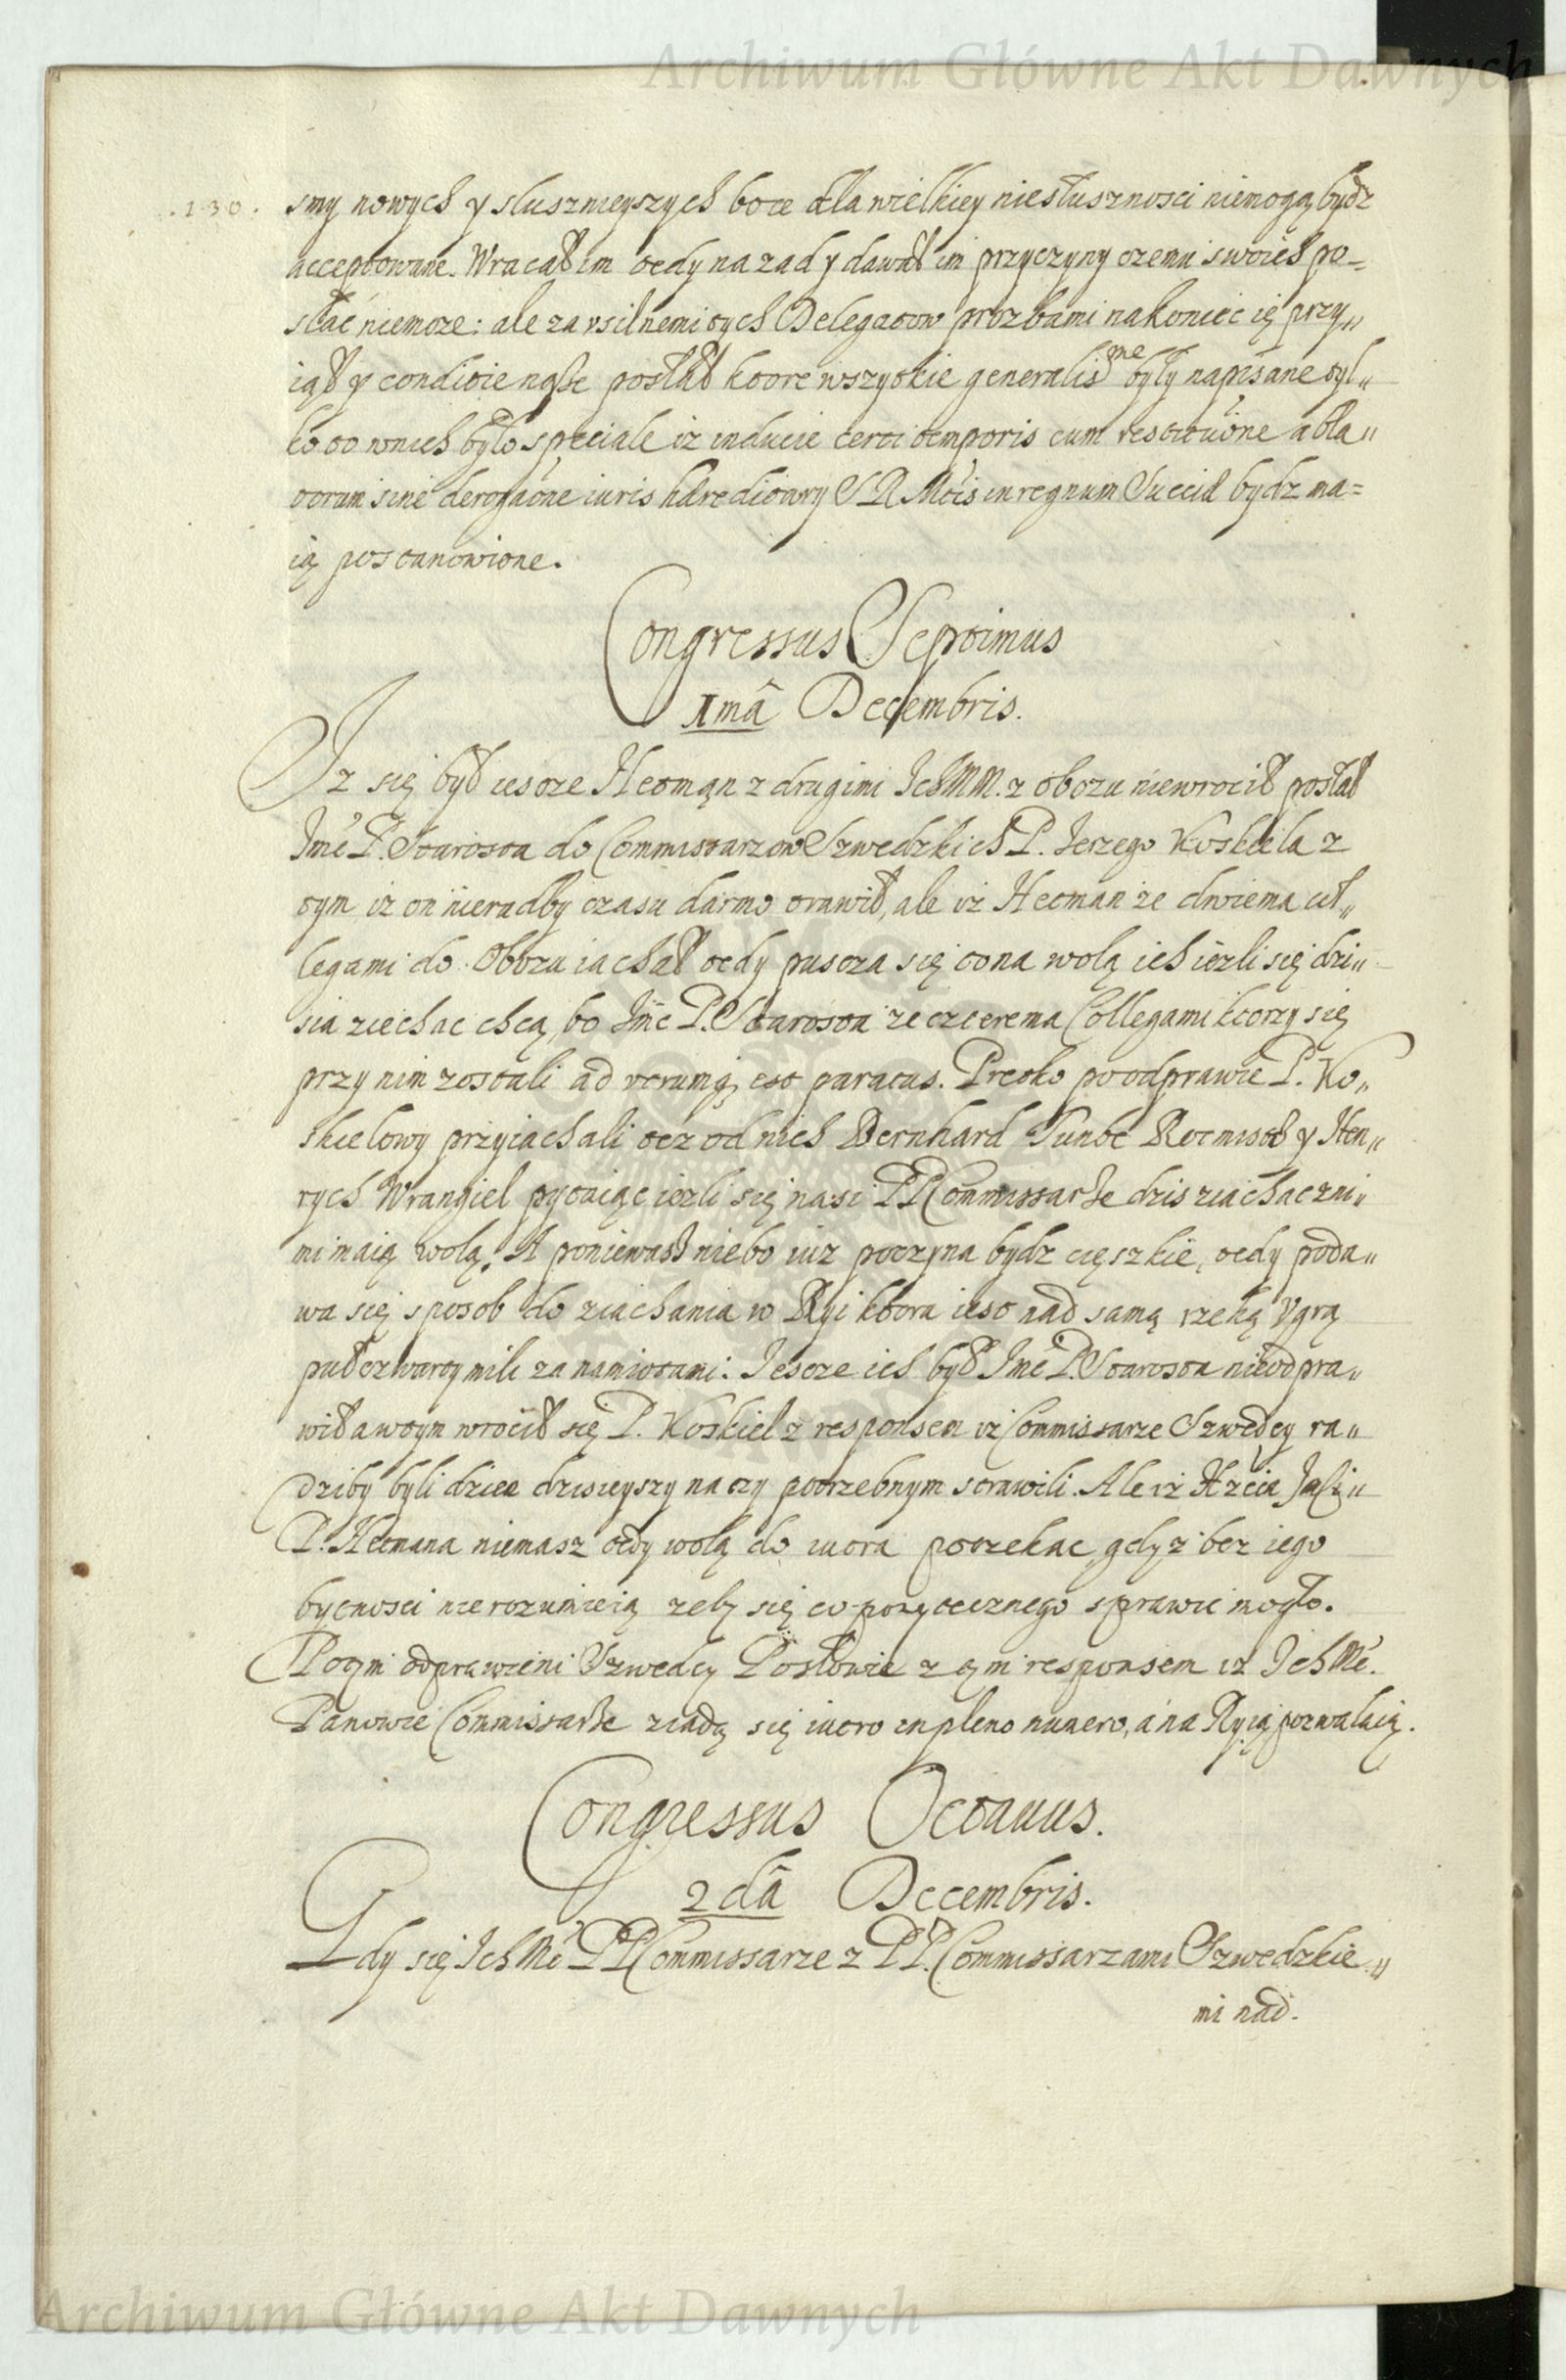 Archiwum Główne Akt Dawnych
.130. smy nowych y sluszneyszych bo te dla wielkiey niesłusznosci niemogą bydz
acceptowane. Wracał im tedy nazad y dawał im przyczyny czemu swoich po-
słać niemoze: ale za vsilnemi tych Delegatow prozbami nakoniec ię przy„
iął y conditie nasze posłał ktore wszytkie generalissme były napisane tyl„
ko to wnich było speciale iz inducie certi temporis cum restitutione abla„
torum sine derogaone iuris hæreditary S R Mtis in regnum Sueciæ bydz ma=
ią postanowione.
Congressus Septimus
1mâ Decembris.
Iz się był iescze Hetmąn z drugimi IchMM. z obozu niewrocił posłał
Jmć P. Starosta do Commissarzow Szwedzkich P. Jerzego Koskiela z
tym iz on nieradby czasu darmo trawił, ale iz Hetman ze dwiema col„
legami do Obozu iachał tedy puscza się to na wolą ich iezli się dzi„
sia ziechac chcą, bo Jmć P. Starosta ze czterema Collegami ktorzy się
przy nim zostali ad utrumq est paratus. Prętko po odprawie P. Ko„
skielowy przyiachali tez od nich Bernhard Tunbe Rotmistr y Hen„
rych Wrangiel pytaiąc iezli się nasi PP Commissarze dzis ziachac zni„
mi maią wolą. A poniewasz niebo iuz poczyna bydz cięszkie, tedy poda„
wa się sposob do ziachania w Ryi ktora iest nad samą rzeką Ugrą
puł czwarty mile za namiotami: Jescze ich był Jmć P. Starosta nieodpra„
wił a wtym wrocił się P. Koskiel z responsem iz Commissarze Szwedcy ra„
dziby byli dzien dzisieyszy na czy potrzebnym strawili. Ale iz
P. Hetmana niemasz tedy wolą do iutra poczekac, gdyz bez iego
bytnosci nie rozumieią zeby się co pozytecznego sprawic mogło.
Potym odprawieni Szwedcy Posłowie z tym responsem iz IchMć.
Panowie Commissarze ziadą się iutro in pleno numero, a na Ryią pozwalaią.
Congressus Octauus.
2dâ Decembris.
Gdy się IchMć PP Commissarze z PP. Commissarzami Szwedzkie„
mi nad.
Archiwum Główne Akt Dawnych